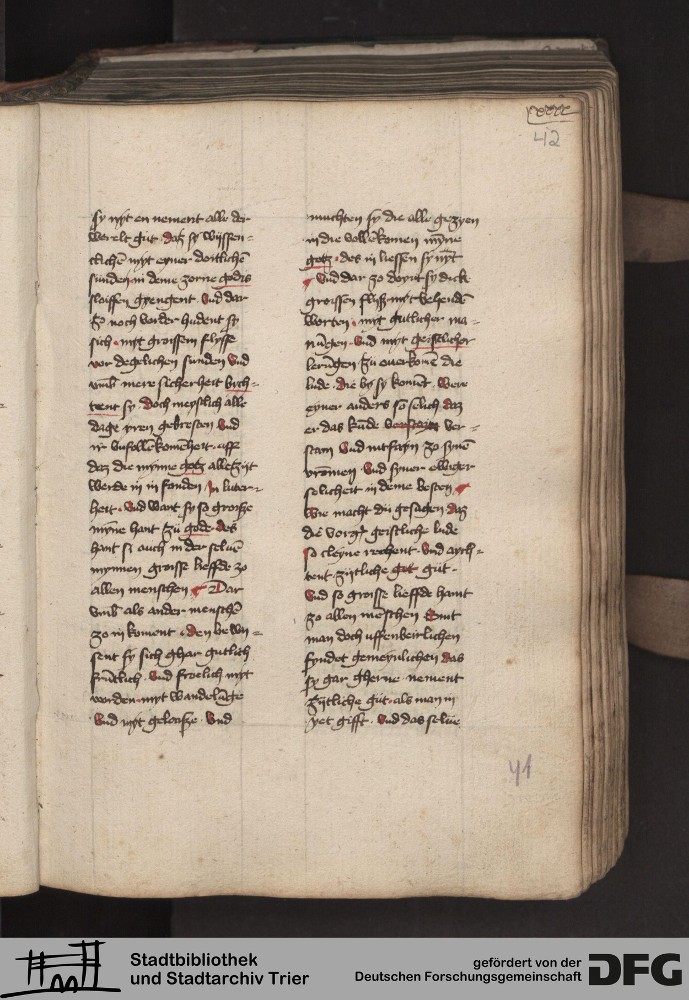 xxxx
42
sy nyt en nement alle der
werelt gut · daz sy wyssen=
clichē myt eyner doitlichē
sunden in deme zorne godis
sloiffen gzengent · Vnd dar
zo noch vorder hudent sy
sich · myt groissem flysse
vor degelichen sunden Vnd
vmb mere sicherheit
sy · doch meystlich alle
dage yren gebresten Vnd
ir vnfollēkomēheit · uff
daz die mynne gotz allezijt
werde in in fonden / In luter=
heit · Vnd want sy so groisze
myne hant zu gode · des
hant si auch in der seluē
mynnen groisse lieffde zo
allen menschen Dar
vmb als ander menschē
zo in koment · den bewy=
sent sy sich ghar gutlich
frūtlich · Vnd froelich myt
worden · myt wandelūge
Vnd myt geloesze · Vnd
muchten sy die alle gezyen
in die vollēkomen mȳne
gotz · des in liessen sy nyt
Vnd dar zo doynt sy dick
groissen flysz myt behendē
worten · myt gutlicher ma=
nūgen · Vnd myt geistlicher
lerūgen zu ouerkomē die
lude · die by sy komēt · Were
eyner anders so selich daz
er das kūde ver=
stam Vnd intfayn zo synē
vromen · Vnd syner ewiger
selicheit in deme besten
Wie macht dū gesagen daz
die vorg geistliche lude
so cleyne rechent · Vnd aych=
tent · zijtliche got gūt ·
Vnd so groisse lieffde hant
zo allen mēschen Sint
man doch uffenberlichen
fyndet gemeynlichen das
sy gar gherne nement
zijtliche gūt · als man in
yet gifft · Vnd das selue
41
Stadtbibliothek
und Stadtarchiv Trier
gefördert von der
Deutschen Forschungsgemeinschaft
DFG